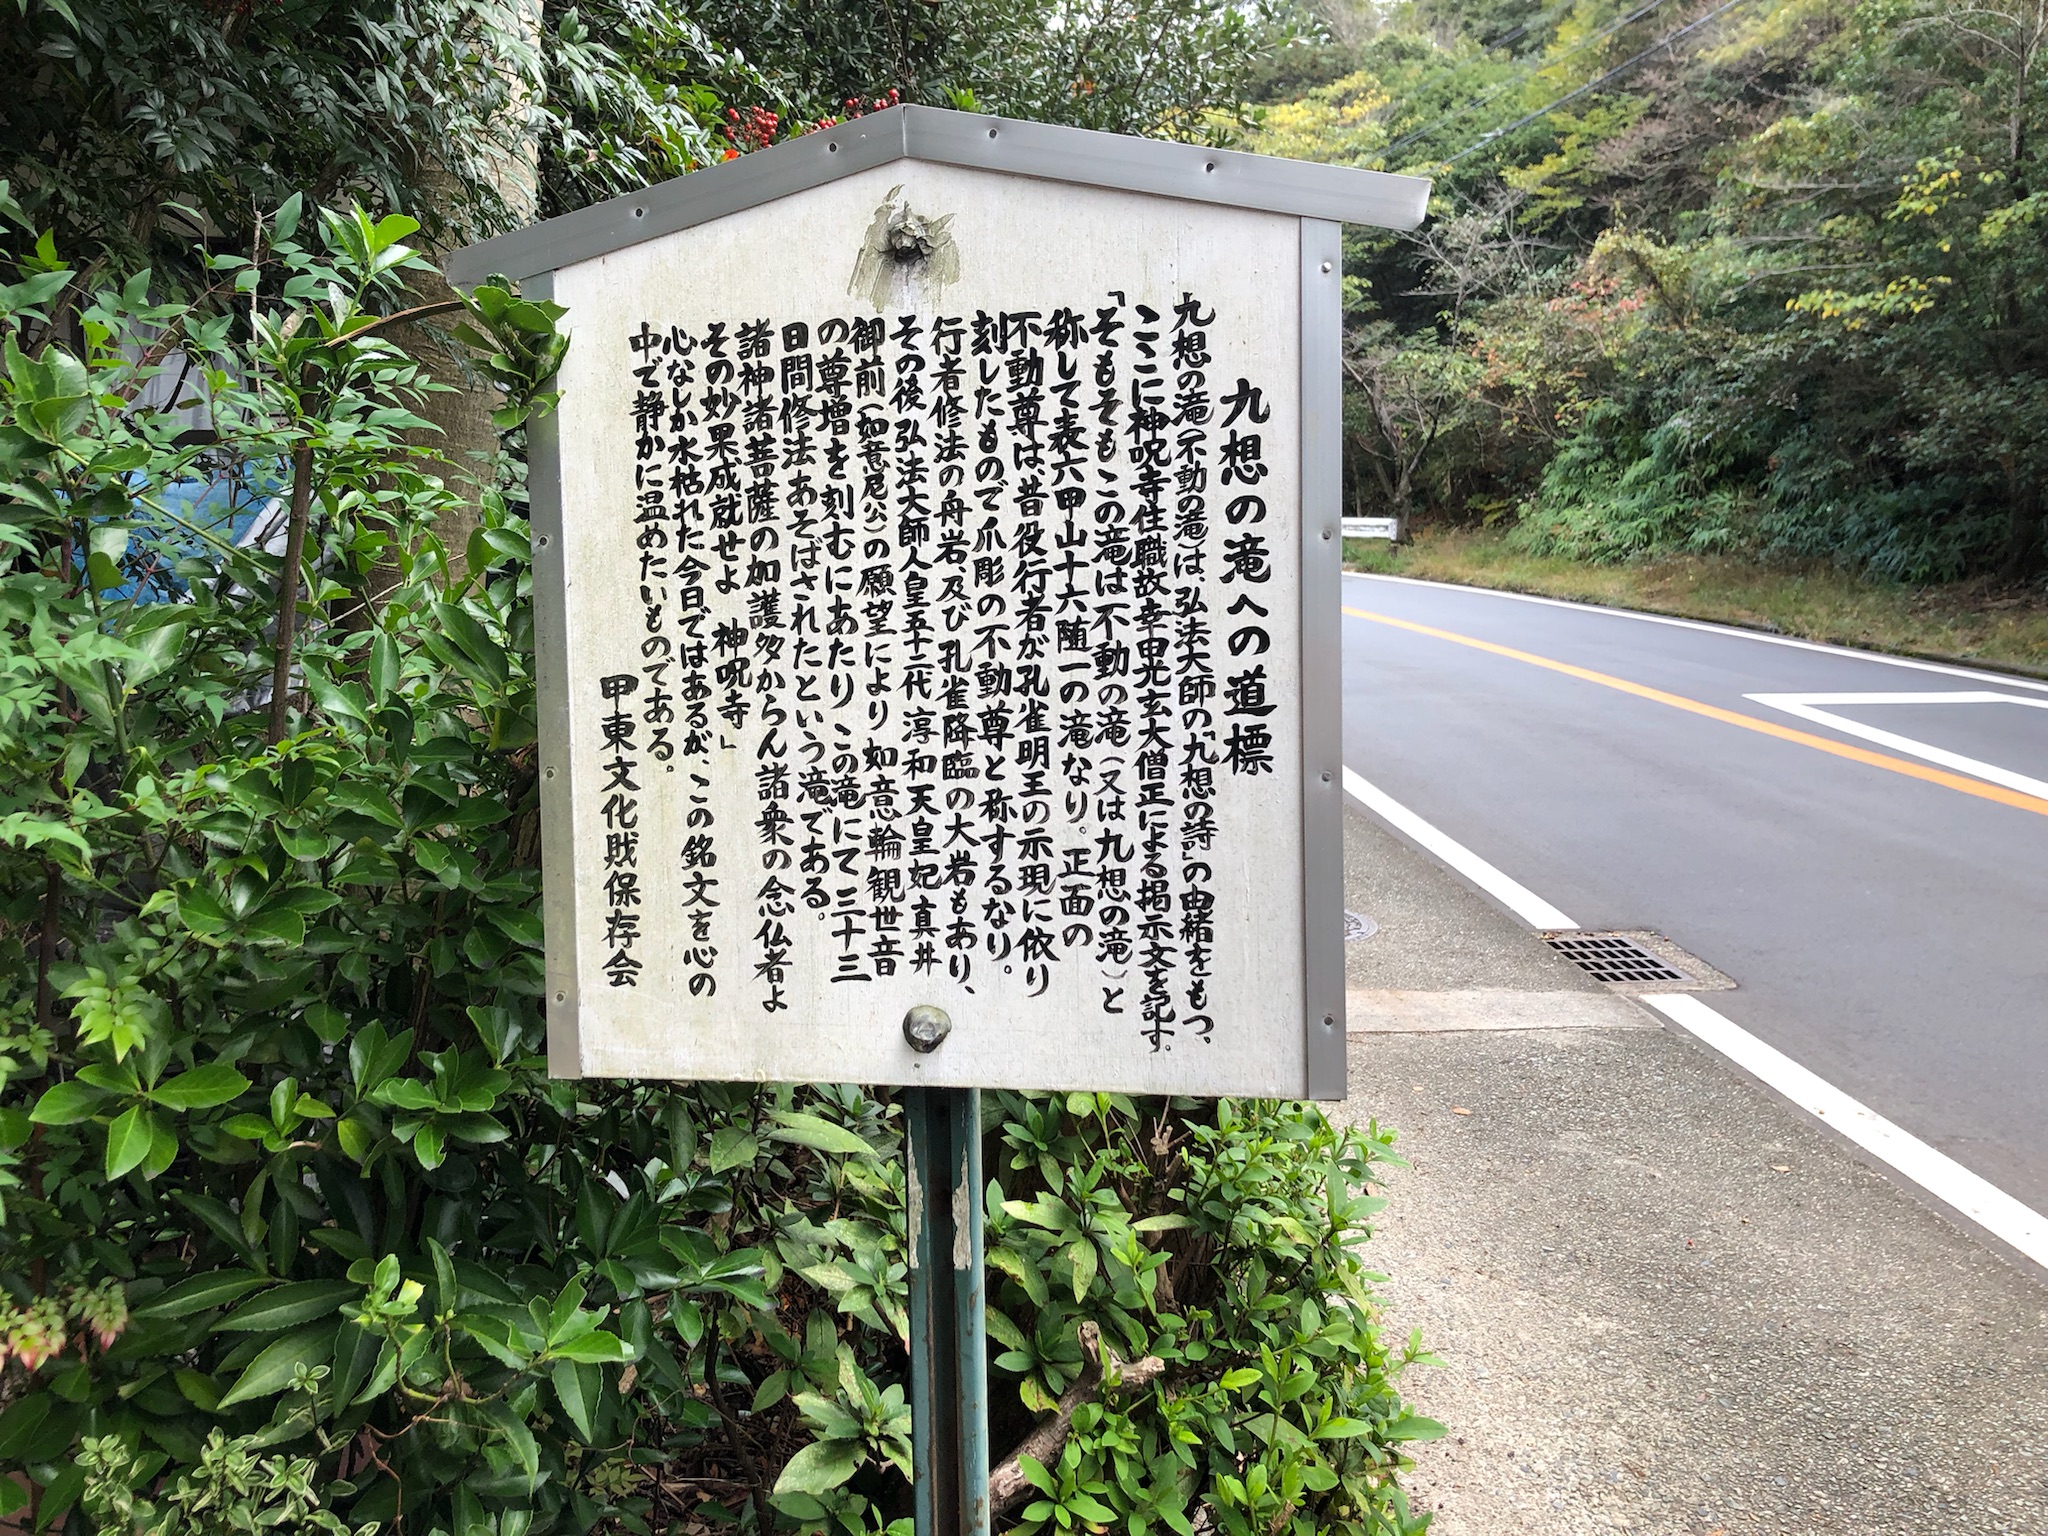 九想の滝への道標
九想の滝(不動の滝)は、弘法大師の「九想の詩」の由緒をもつ、
ここに神呪寺住職故幸田光玄大僧正による掲示文を記す。
「そもそもこの滝は不動の滝(又は九想の滝)と
称して表六甲山十六随一の滝なり。正面の
不動尊は、昔役行者が孔雀明王の示現に依り
刻したもので爪彫の不動尊と称するなり。
行者修法の舟岩、及び孔雀降臨の大岩もあり、
その後弘法大師人皇五十二代淳和天皇妃真井
御前(如意尼公)の願望により如意輪観世音
の尊増を刻むにあたりこの滝にて三十三
日間修法あそばされたという滝である。
諸神諸菩薩の加護多からん諸衆の念仏者よ
その妙果成就せよ 神呪寺」
心なしか水枯れた今日ではあるが、この銘文を心の
中で静かに温めたいものである。
甲東文化財保存会